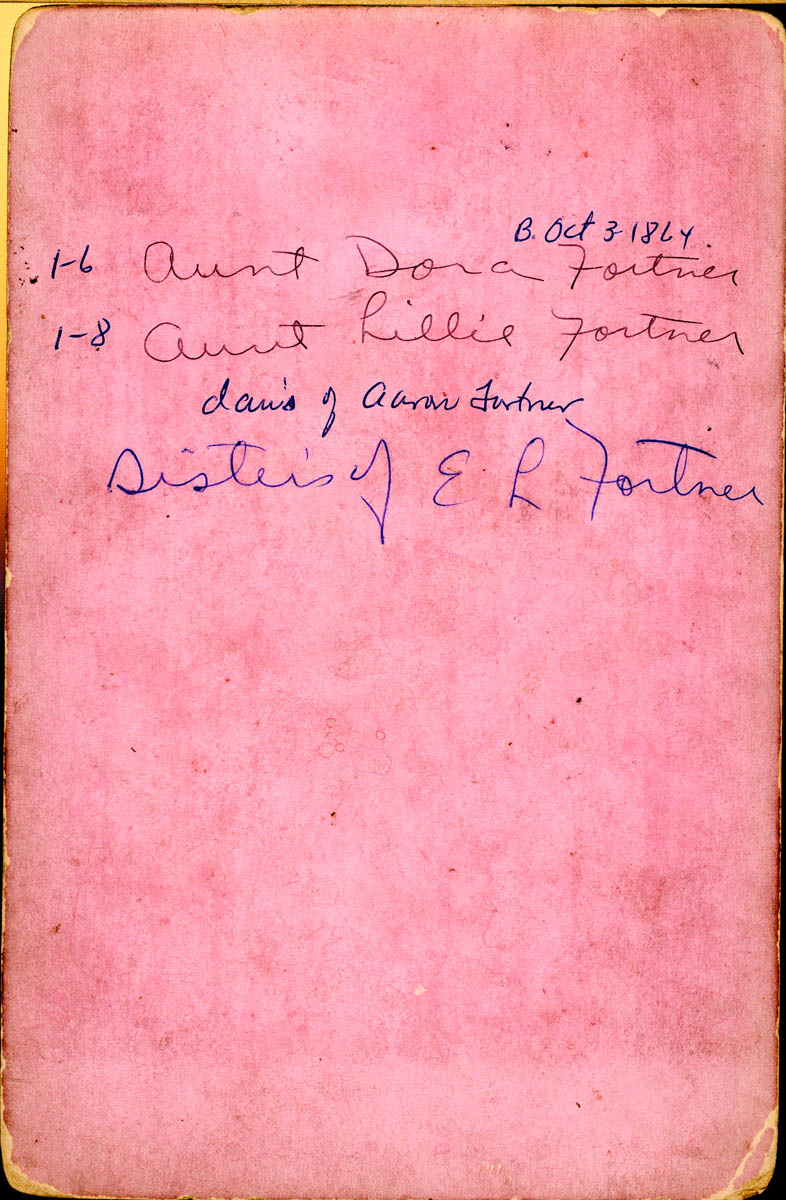 B. Oct 3-1864.
1-6 Aunt Dora Fortner
1-8 Aunt Lillie Fortner
dau's of Aaron Fortner
Sisters of E L Fortner